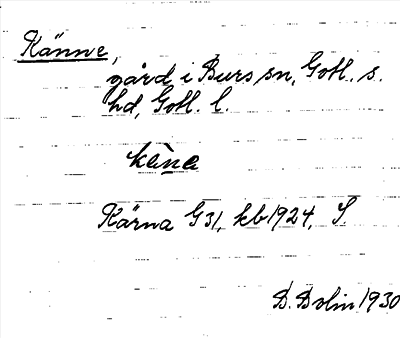 Känne,
gård i Burs sn, Gotl. s.
hd, Gotl. l.
kὲna
Kärna G31, kb1924, S
D. Bolin 1930